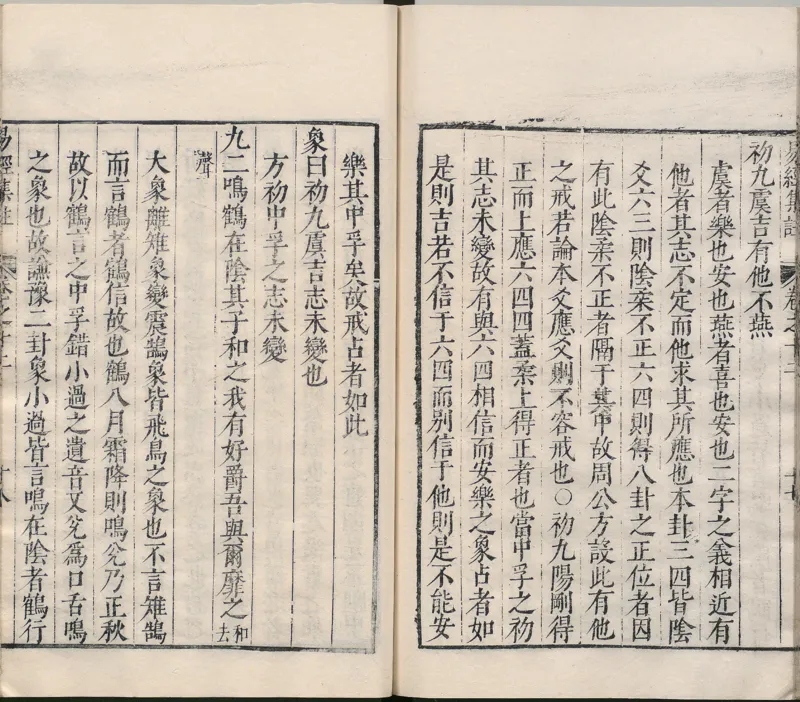 易經集註 卷之十二
初九虞吉有他不燕
虞者樂也安也燕者喜也安也二字之義相近有
他者其志不定而他求其所應也本卦三四皆陰
爻六三則陰柔不正六四則得八卦之正位者因
有此陰柔不正者隔于其中故周公方設此有他
之戒若論本爻應爻則不容戒也○初九陽剛得
正而上應六四四蓋柔上得正者也當中孚之初
其志未變故有與六四相信而安樂之象占者如
是則吉若不信于六四而别信于他則是不能安
樂其中孚矣故戒占者如此
象曰初九虞吉志未變也
方初中孚之志未變
九二鳴鶴在陰其子和之我有好爵吾與爾靡之和去
聲
大象離雉象變震鵠象皆飛鳥之象也不言雉鵠
而言鶴者鶴信故也鶴八月霜降則鳴兊乃正秋
故以鶴言之中孚錯小過之遺音又兊爲口舌鳴
之象也故謙豫二卦象小過皆言鳴在陰者鶴行
易經集註 卷之十二 十八